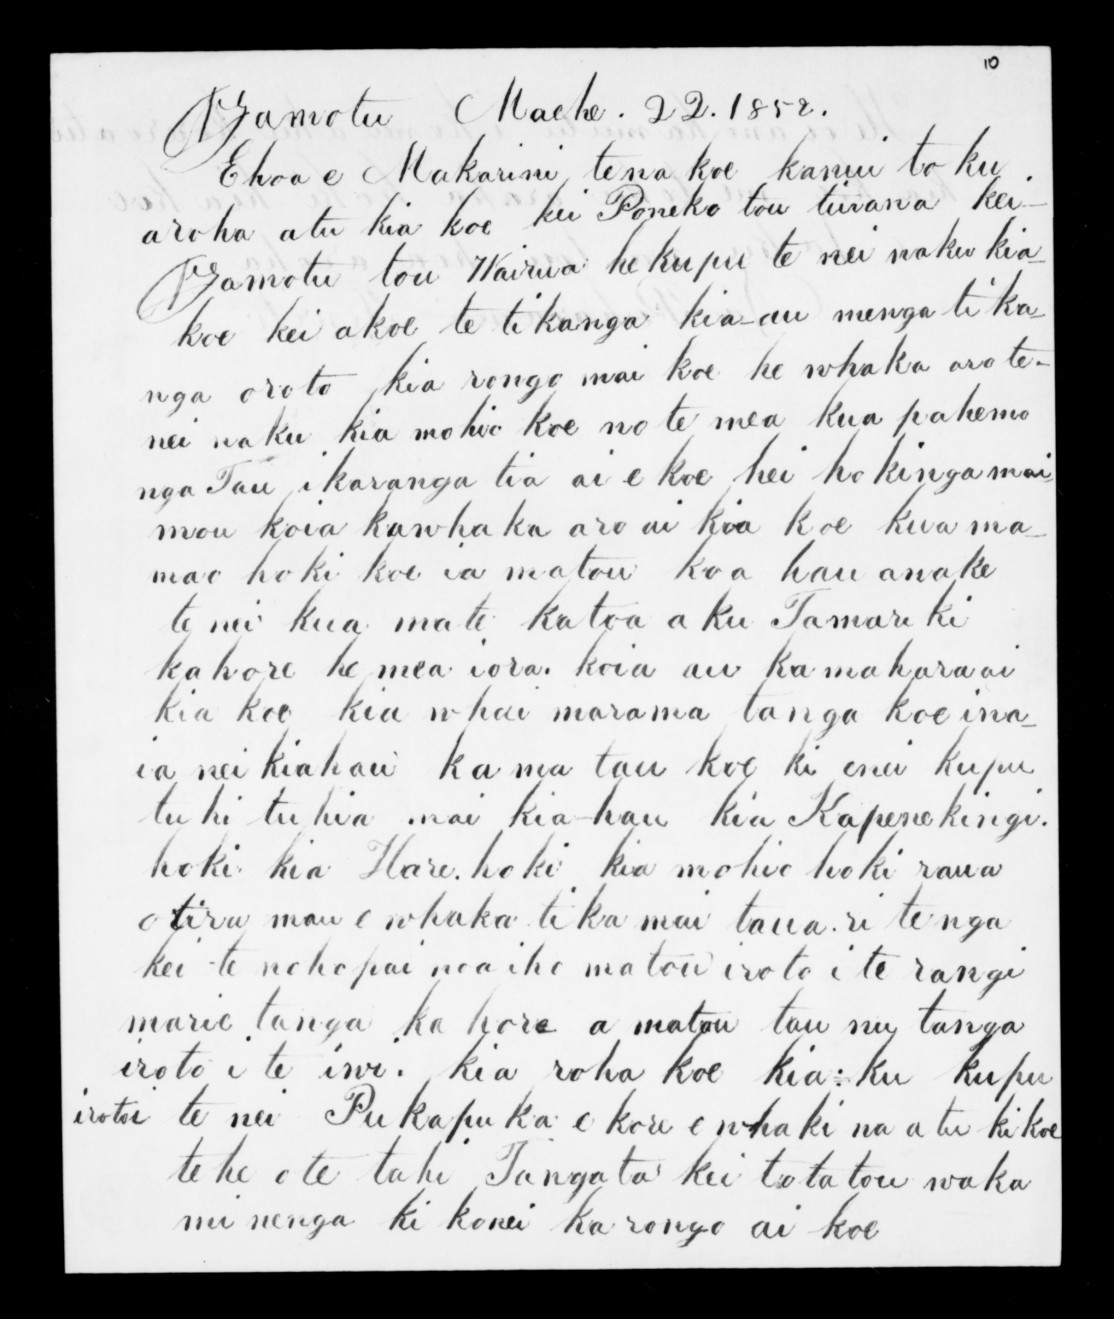 10
Ngamotu Maehe. 22. 1852.
Ehoa e Makarini tena koe kanui to ku
aroha atu kia koe kei Poneke tou tinana kei-
Ngamotu tou Wairua he kupu te nei naku kia-
koe kei akoe te tikanga kia-au menga tika-
nga oroto kia rongo mai koe he whaka aro te-
nei naku kia mohio koe no te mea kua pahemo
nga Tau ikaranga tia ai e koe hei ho kinga mai
mou koia kawhaka aro ai kia koe kua ma-
mao hoki koe ia matou ko a hau anake
te nei kua mate katoa a ku Tamariki
kahore he mea iora. koia au ka maharaai
kia koe kia whai marama tanga koe ina-
ia nei kiahau ka ma tau koe ki enei kupu
tu hi tu hia mai kia-hau kia Kapene kingi.
hoki kia Hare. hoki kia mohio hoki raua
otira mau e whaka tika mai taua. ri te nga
kei-te noho pai noa iho matou iroto i te rangi
marie tanga ka hore a matou tau nu tanga
iroto i te iwi. kia roha koe kia: ku kupu
irotoi te nei Pukapuka e kore e whaki na a tu ki koe
te he o te tahi Tangata kei to tatou waka
mi nenga ki konei ka rongo ai koe